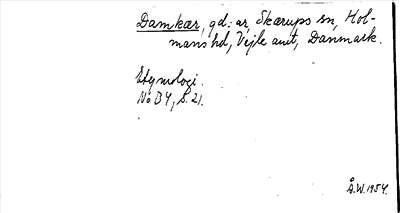 Damkær, gd:ar, Skærups sn, Hol-
mans hd, Vejle amt, Danmark.
Etymologi.
NoB4, S. 21.
Å.W. 1954.